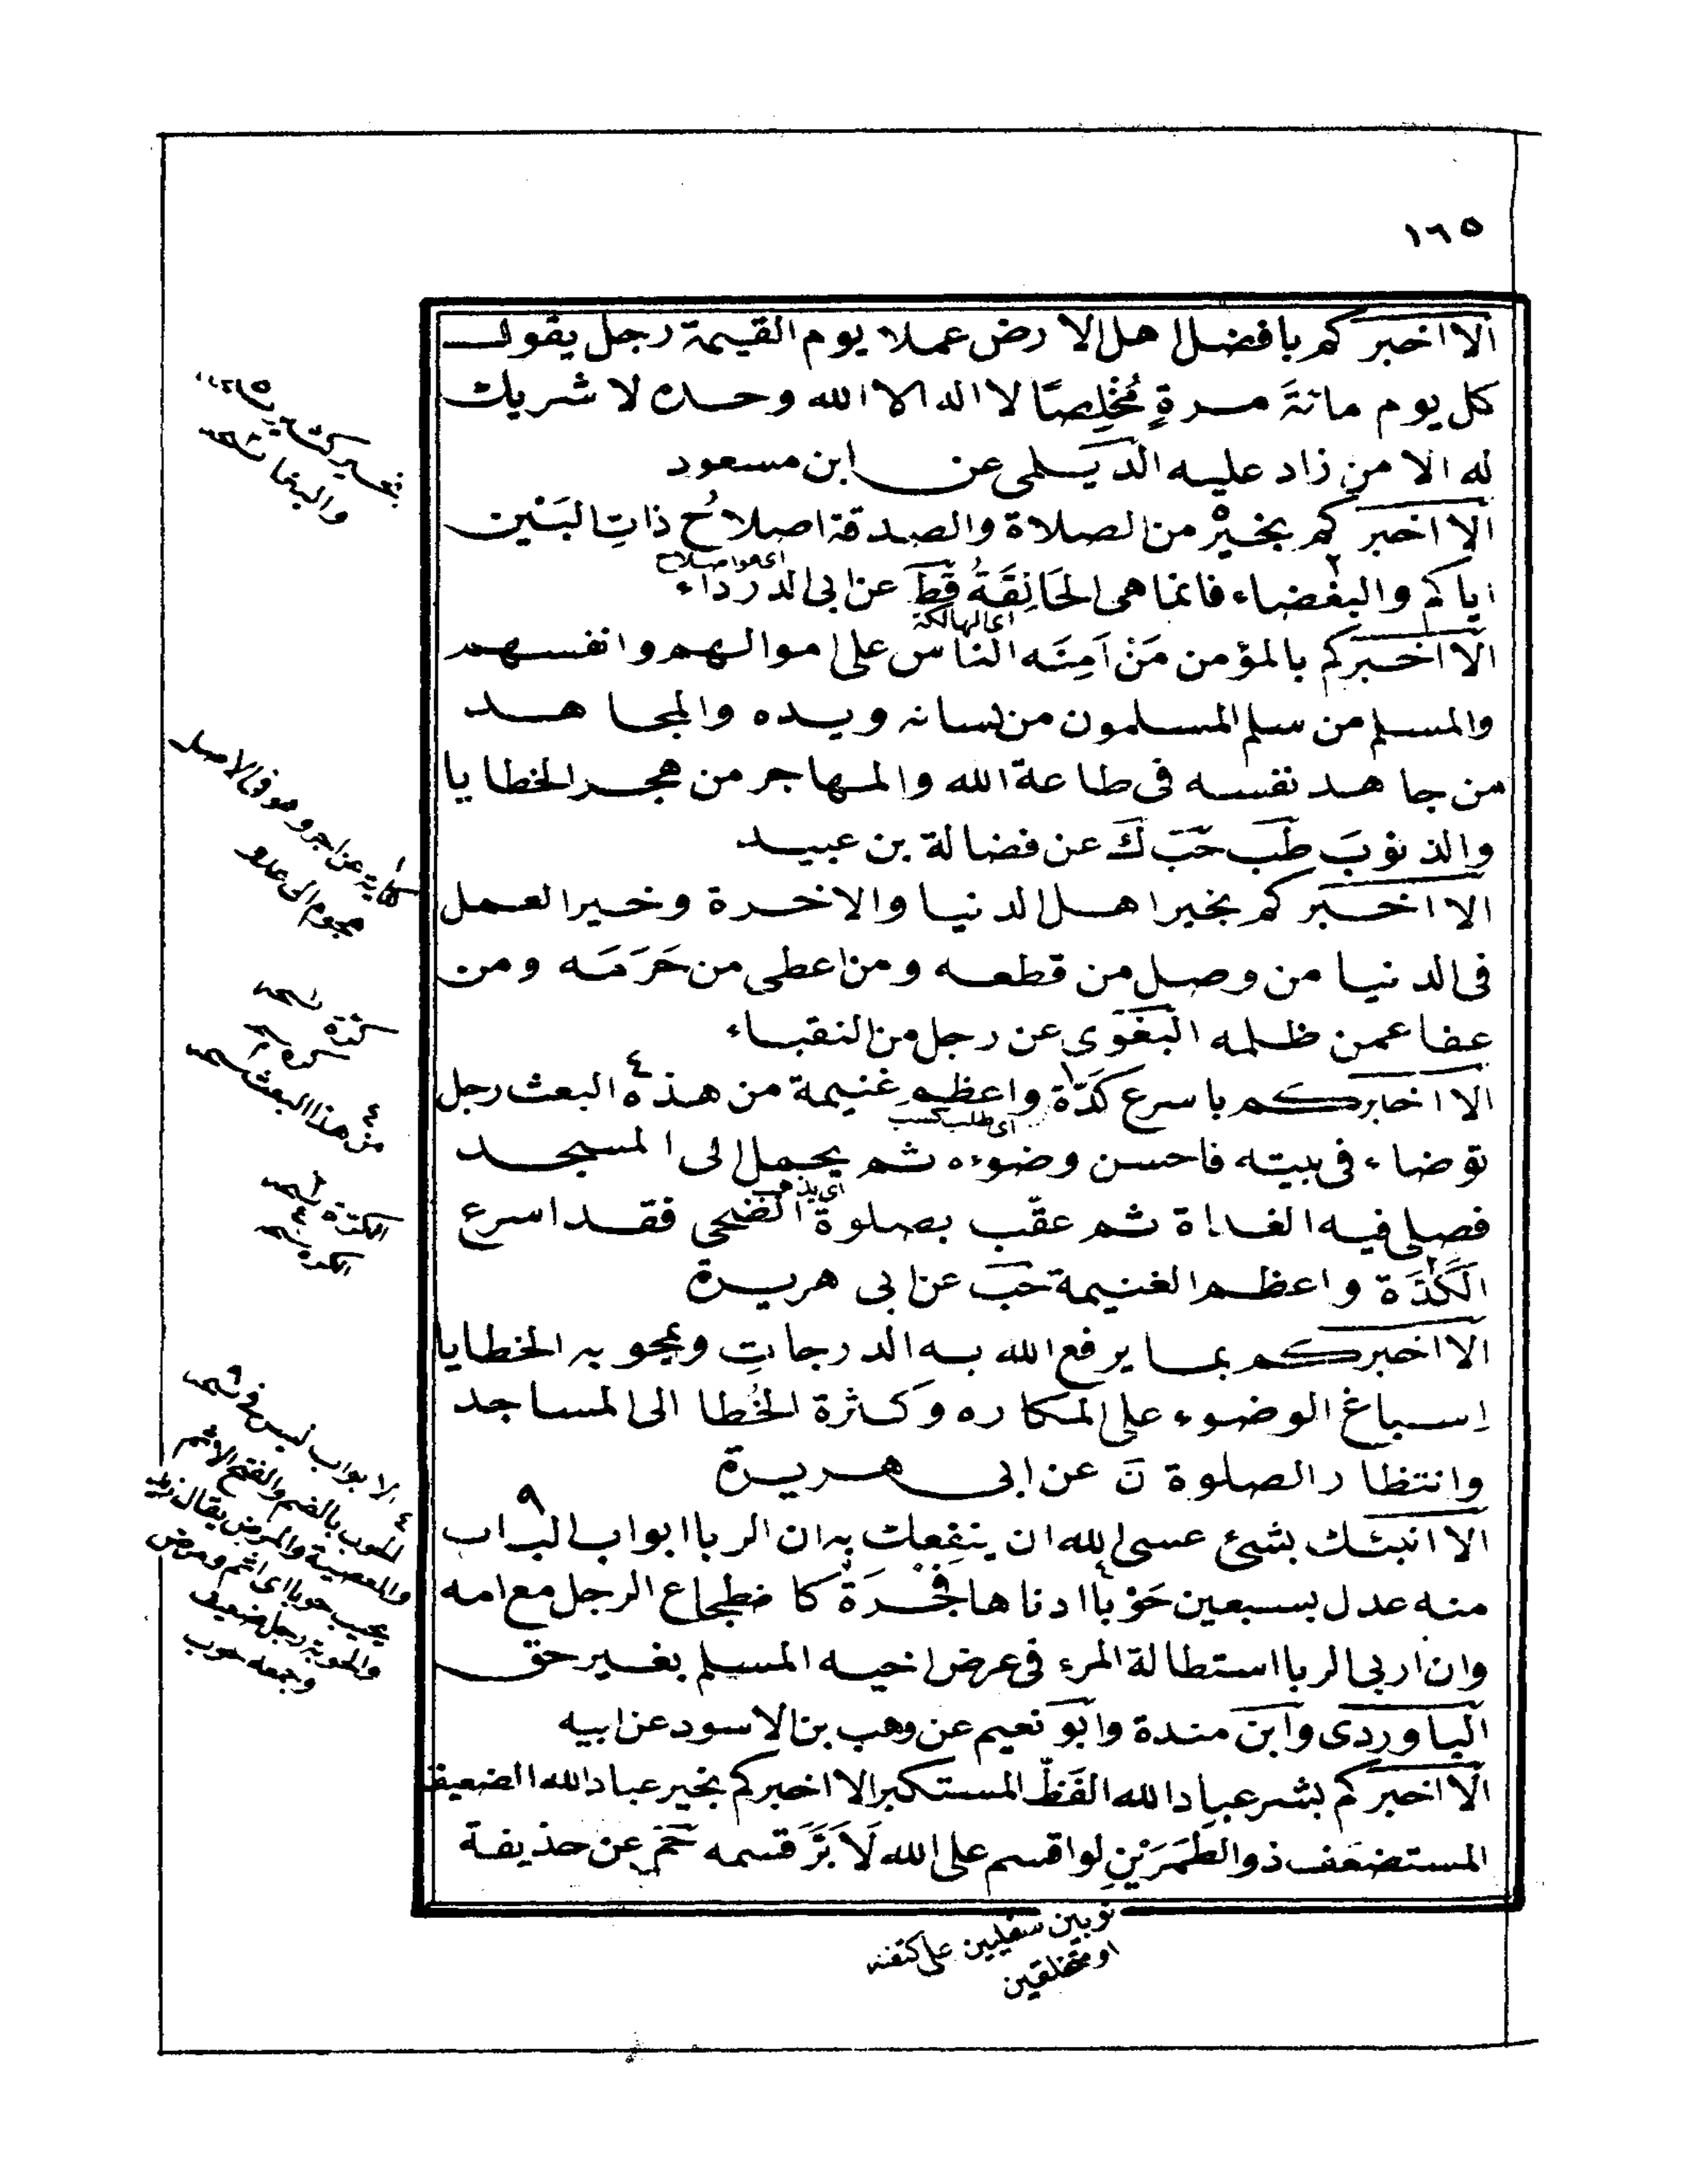 ١٦٥
الا اخبركم بافضل اهل الارض عملا يوم القيمة رجل يقول
كل يوم مائة مرةٍ مُخْلِصًا لا اله الا الله وحده لا شريك
له الا من زاد عليه الديلمى عن ابن مسعود
الا اخبركم بخير من الصلاة والصدقة اصلاحُ ذاتِ البَيْن
اى هو اصلاح
اياكم والبغضاء فانما هى الحَالِقَةُ قط عن ابى الدرداء
اى الهالكة
الا اخبركم بالمؤمن مَنْ اَمِنَه الناس على اموالهم وانفسهم
والمسلم من سلم المسلمون من لسانه ويده والمجاهد
من جاهد نفسه فى طاعة الله والمهاجر من هجر الخطايا
والذنوبَ طب حب ك عن فضالة بن عبيد
الا اخبركم بخير اهل الدنيا والاخرة وخير العمل
فى الدنيا من وصل من قطعه ومن اعطى من حَرَمَه ومن
عفا عمن ظلمه البغوى عن رجل من النقباء
الا اخبركم باسرع كَدّة واعظم غنيمة من هذه ٤ البعث رجل
اى طلب كسب
توضاء فى بيته فاحسن وضوءه ثم يحمل الى المسجد
اى يذهب
فصلى فيه الغداة ثم عقّب بصلوة الضحى فقد اسرع
الكَدَّة واعظم الغنيمة حب عن ابى هريرة
الا اخبركم بما يرفع الله به الدرجاتِ ويمحو به الخطايا
اِسباغ الوضوء على المكاره وكثرة الخُطا الى المساجد
وانتظار الصلوة ن عن ابى هريرة
الا انبئك بشئ عسى الله ان ينفعك به ان الربا ابواب ٩ الباب
منه عدل بسبعين حَوْبًا ادناها فَجْرَة كاضطجاع الرجل مع امه
وان اربى الربا استطالة المرء فى عرض اخيه المسلم بغير حق
الباوردى وابن مندة وابو نعيم عن وهب بن الاسود عن ابيه
الا اخبركم بشر عباد الله الفَظّ المستكبر الا اخبركم بخير عباد الله الضعيف
المستضعَف ذو الطِمرَيْنِ لو اقسم على الله لَاَبَرَّ قسمه حم عن حذيفة
وهو فى الاصل
كناية عن اجر
هجوم الى عدو
كثرة نسخه
كره
٤ من هذا البعث نسخه
الكثرة نسخه
الكره
٩ الابواب ليس فى نسخه
٤ الحوب بالضم والفتح الاثم
والمعصية والمرض يقال
يحيب حوبا اى اثم ومرض
والحوبة رجل ضعيف
وجمعه حوب
ثوبين سفليين على كتفيه
او متخلقين